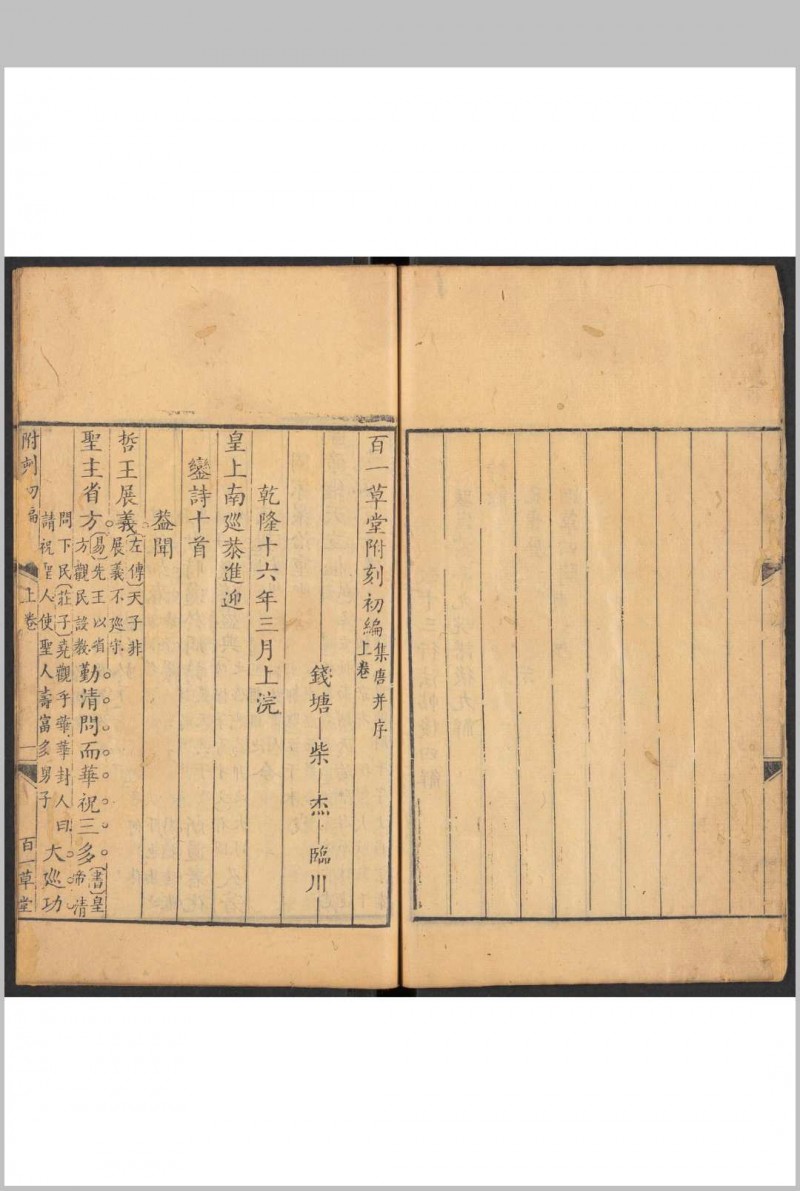 百一草堂附刻初編上卷 集唐并序
錢塘 柴 杰 臨川
乾隆十六年三月上浣
皇上南廵恭進迎
鑾詩十首
蓋聞
哲王展義。〔左傳〕天子非展義不廵守
聖主省方。〔易〕先王以省方觀民設教勤清問而華祝三多。〔書〕皇帝清
問下民〔莊子〕堯觀乎華華封人曰請祝聖人使聖人壽富多男子大廵功
附刻初編 上卷 一 百一草堂